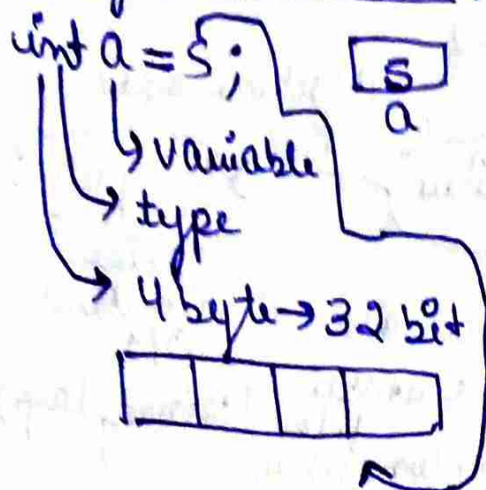 int a = 5;
5
a
variable
type
4 byte → 32 bit